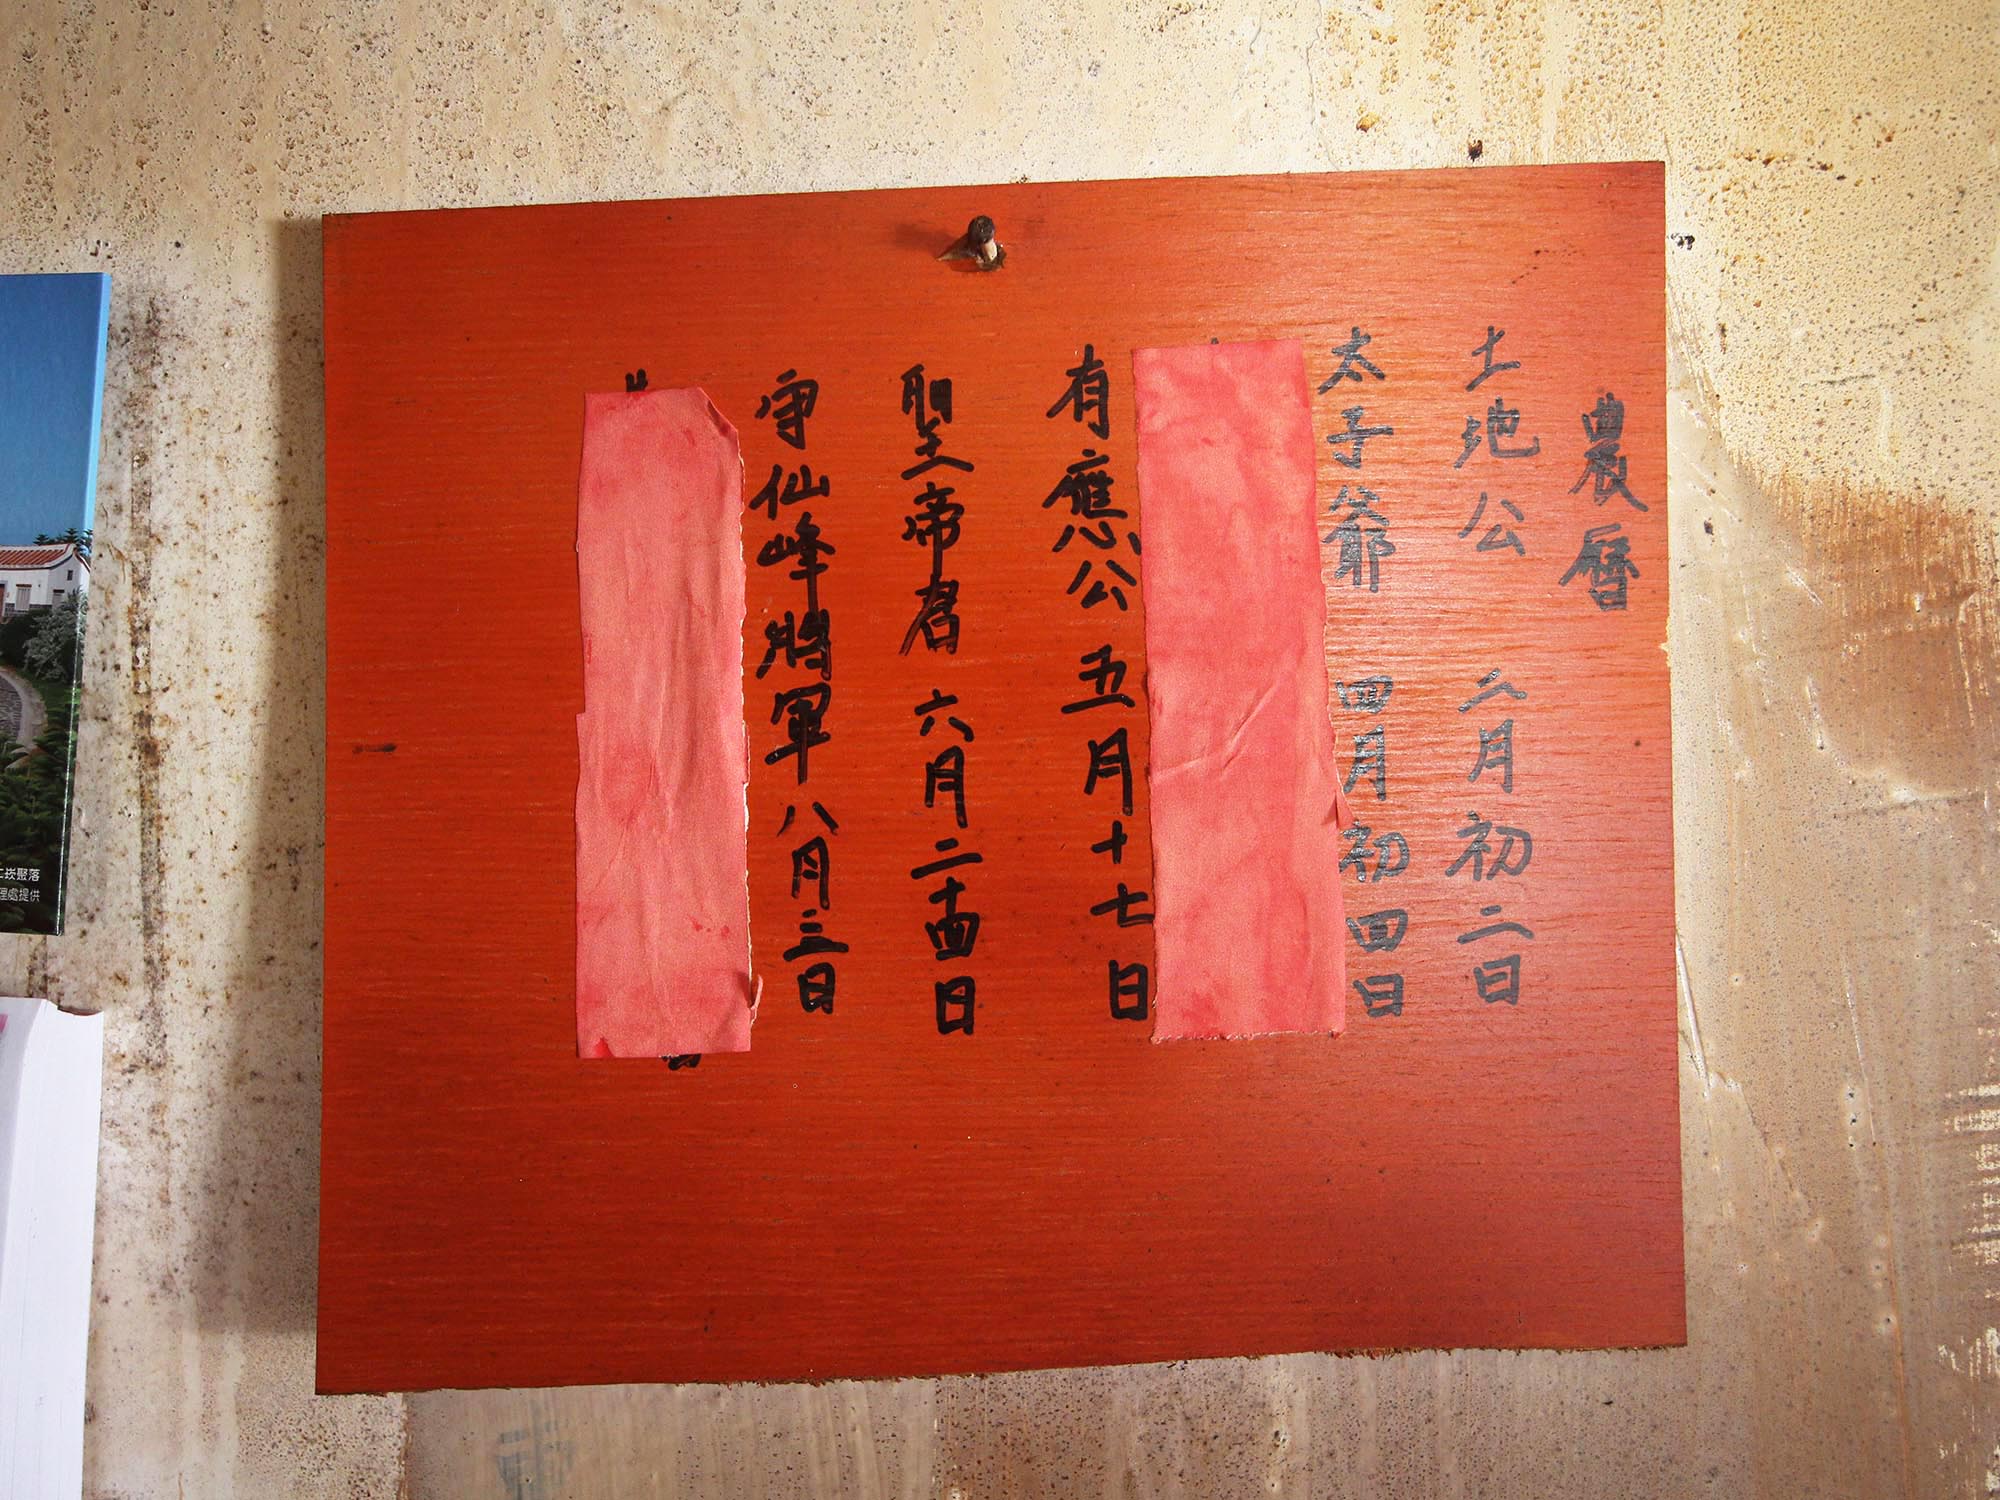 農曆
土地公 二月初二日
太子爺 四月初四日
有應公 五月十七日
聖帝君 六月二十四日
守仙峰將軍 八月三日
二崁聚落
理處提供